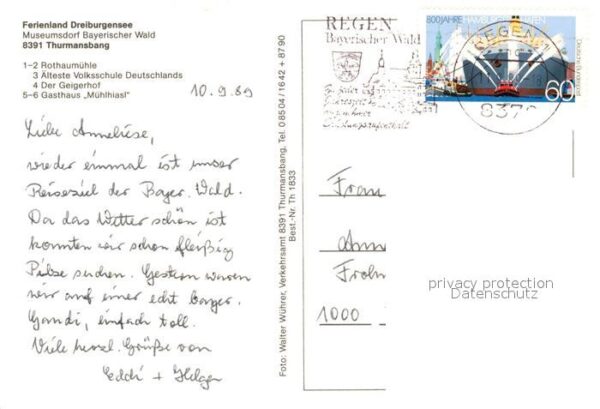 Ferienland Dreiburgensee
Museumsdorf Bayerischer Wald
8391 Thurmansbang
1–2 Rothaumühle
3 Älteste Volksschule Deutschlands
4 Der Geigerhof
5–6 Gasthaus „Mühlhiasl"
10.9.89
Liebe Anneliese,
wieder einmal ist unser
Reiseziel der Bayer. Wald.
Da das Wetter schön ist
konnten wir schon fleißig
Pilze suchen. Gestern waren
wir auf einer echt bayer.
Gaudi, einfach toll.
Viele herzl. Grüße von
Eddi + Helga
Foto: Walter Wührer, Verkehrsamt 8391 Thurmansbang, Tel. 0 85 04 / 16 42 + 87 90
Best.-Nr. Th 1833
REGEN
Bayerischer Wald
800 JAHRE HAMBURGER HAFEN
Deutsche Bundespost
60
REGEN
837
Frau
Frohn
1000
privacy protection
Datenschutz